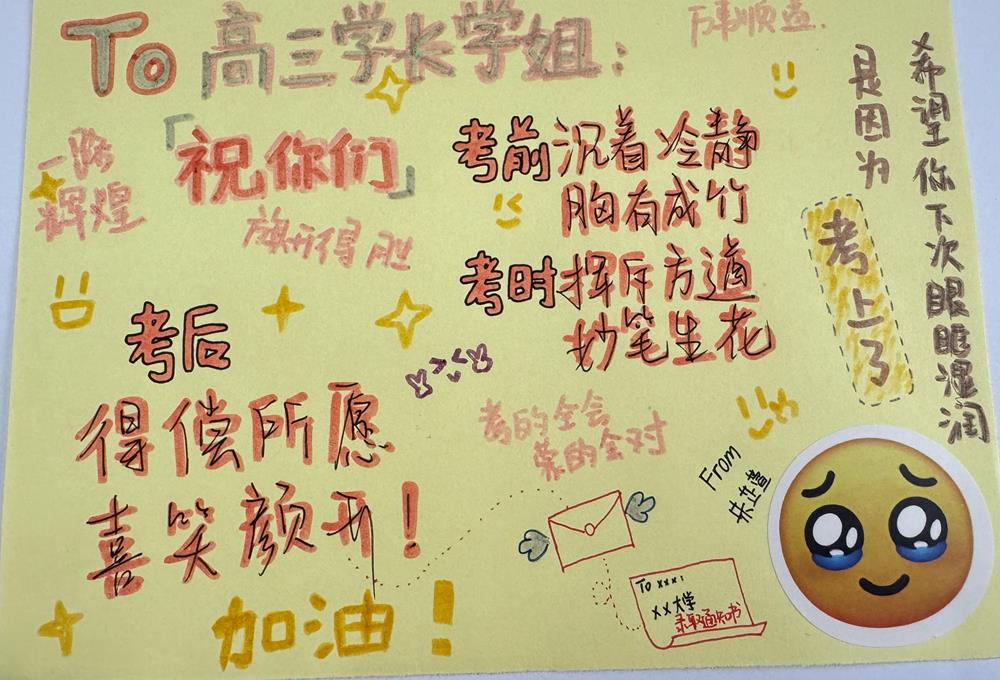 To 高三学长学姐：
万事顺意.
「祝你们」
一路
辉煌
旗开得胜
考前沉着冷静
胸有成竹
考时挥斥方遒
妙笔生花
考后
得偿所愿
喜笑颜开！
考的全会
蒙的全对
加油！
希望你下次眼眶湿润
是因为
考上了
From
To xxx：
xx大学
录取通知书